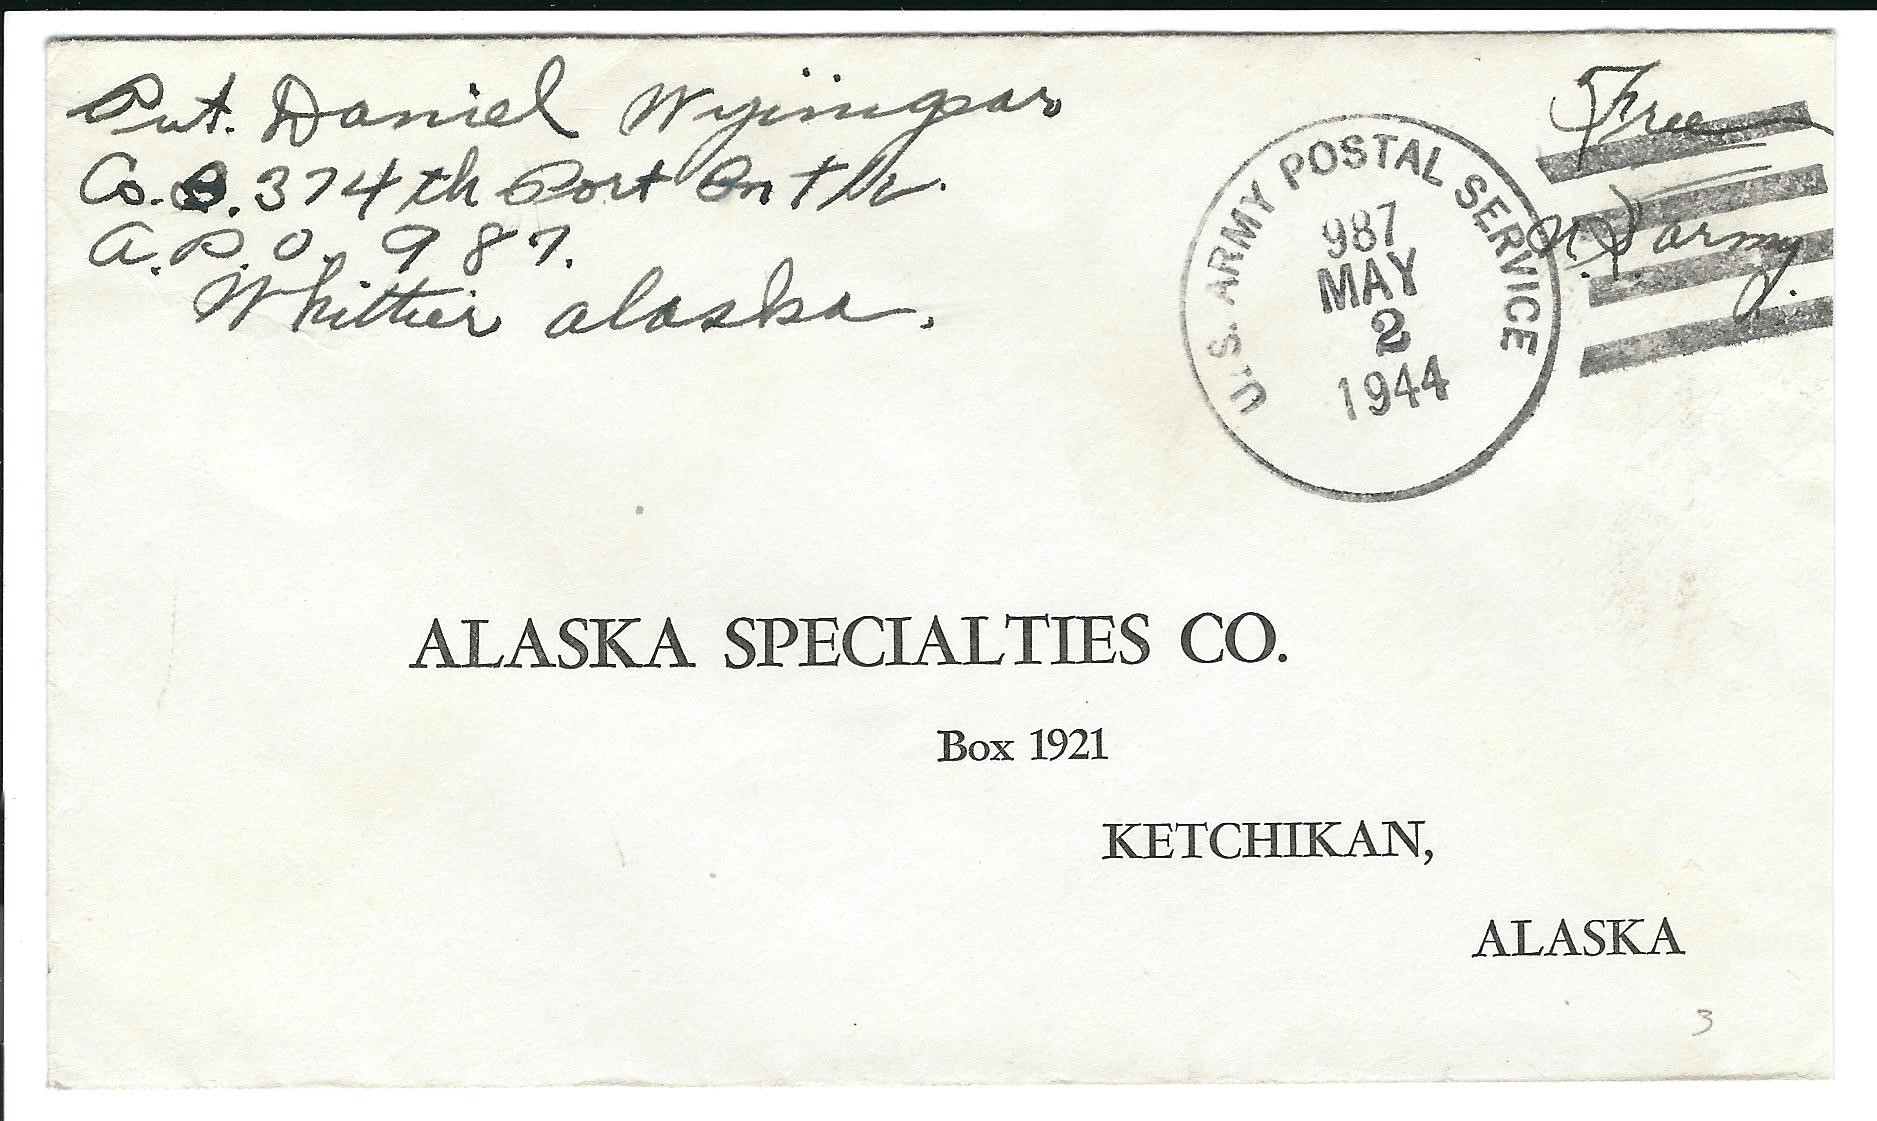 Pvt. Daniel
Co. 374th Port Bn T/r.
A.P.O. 987.
Whittier Alaska.
Free
U.S. Army.
U.S. ARMY POSTAL SERVICE
987
MAY
2
1944
ALASKA SPECIALTIES CO.
Box 1921
KETCHIKAN,
ALASKA
3